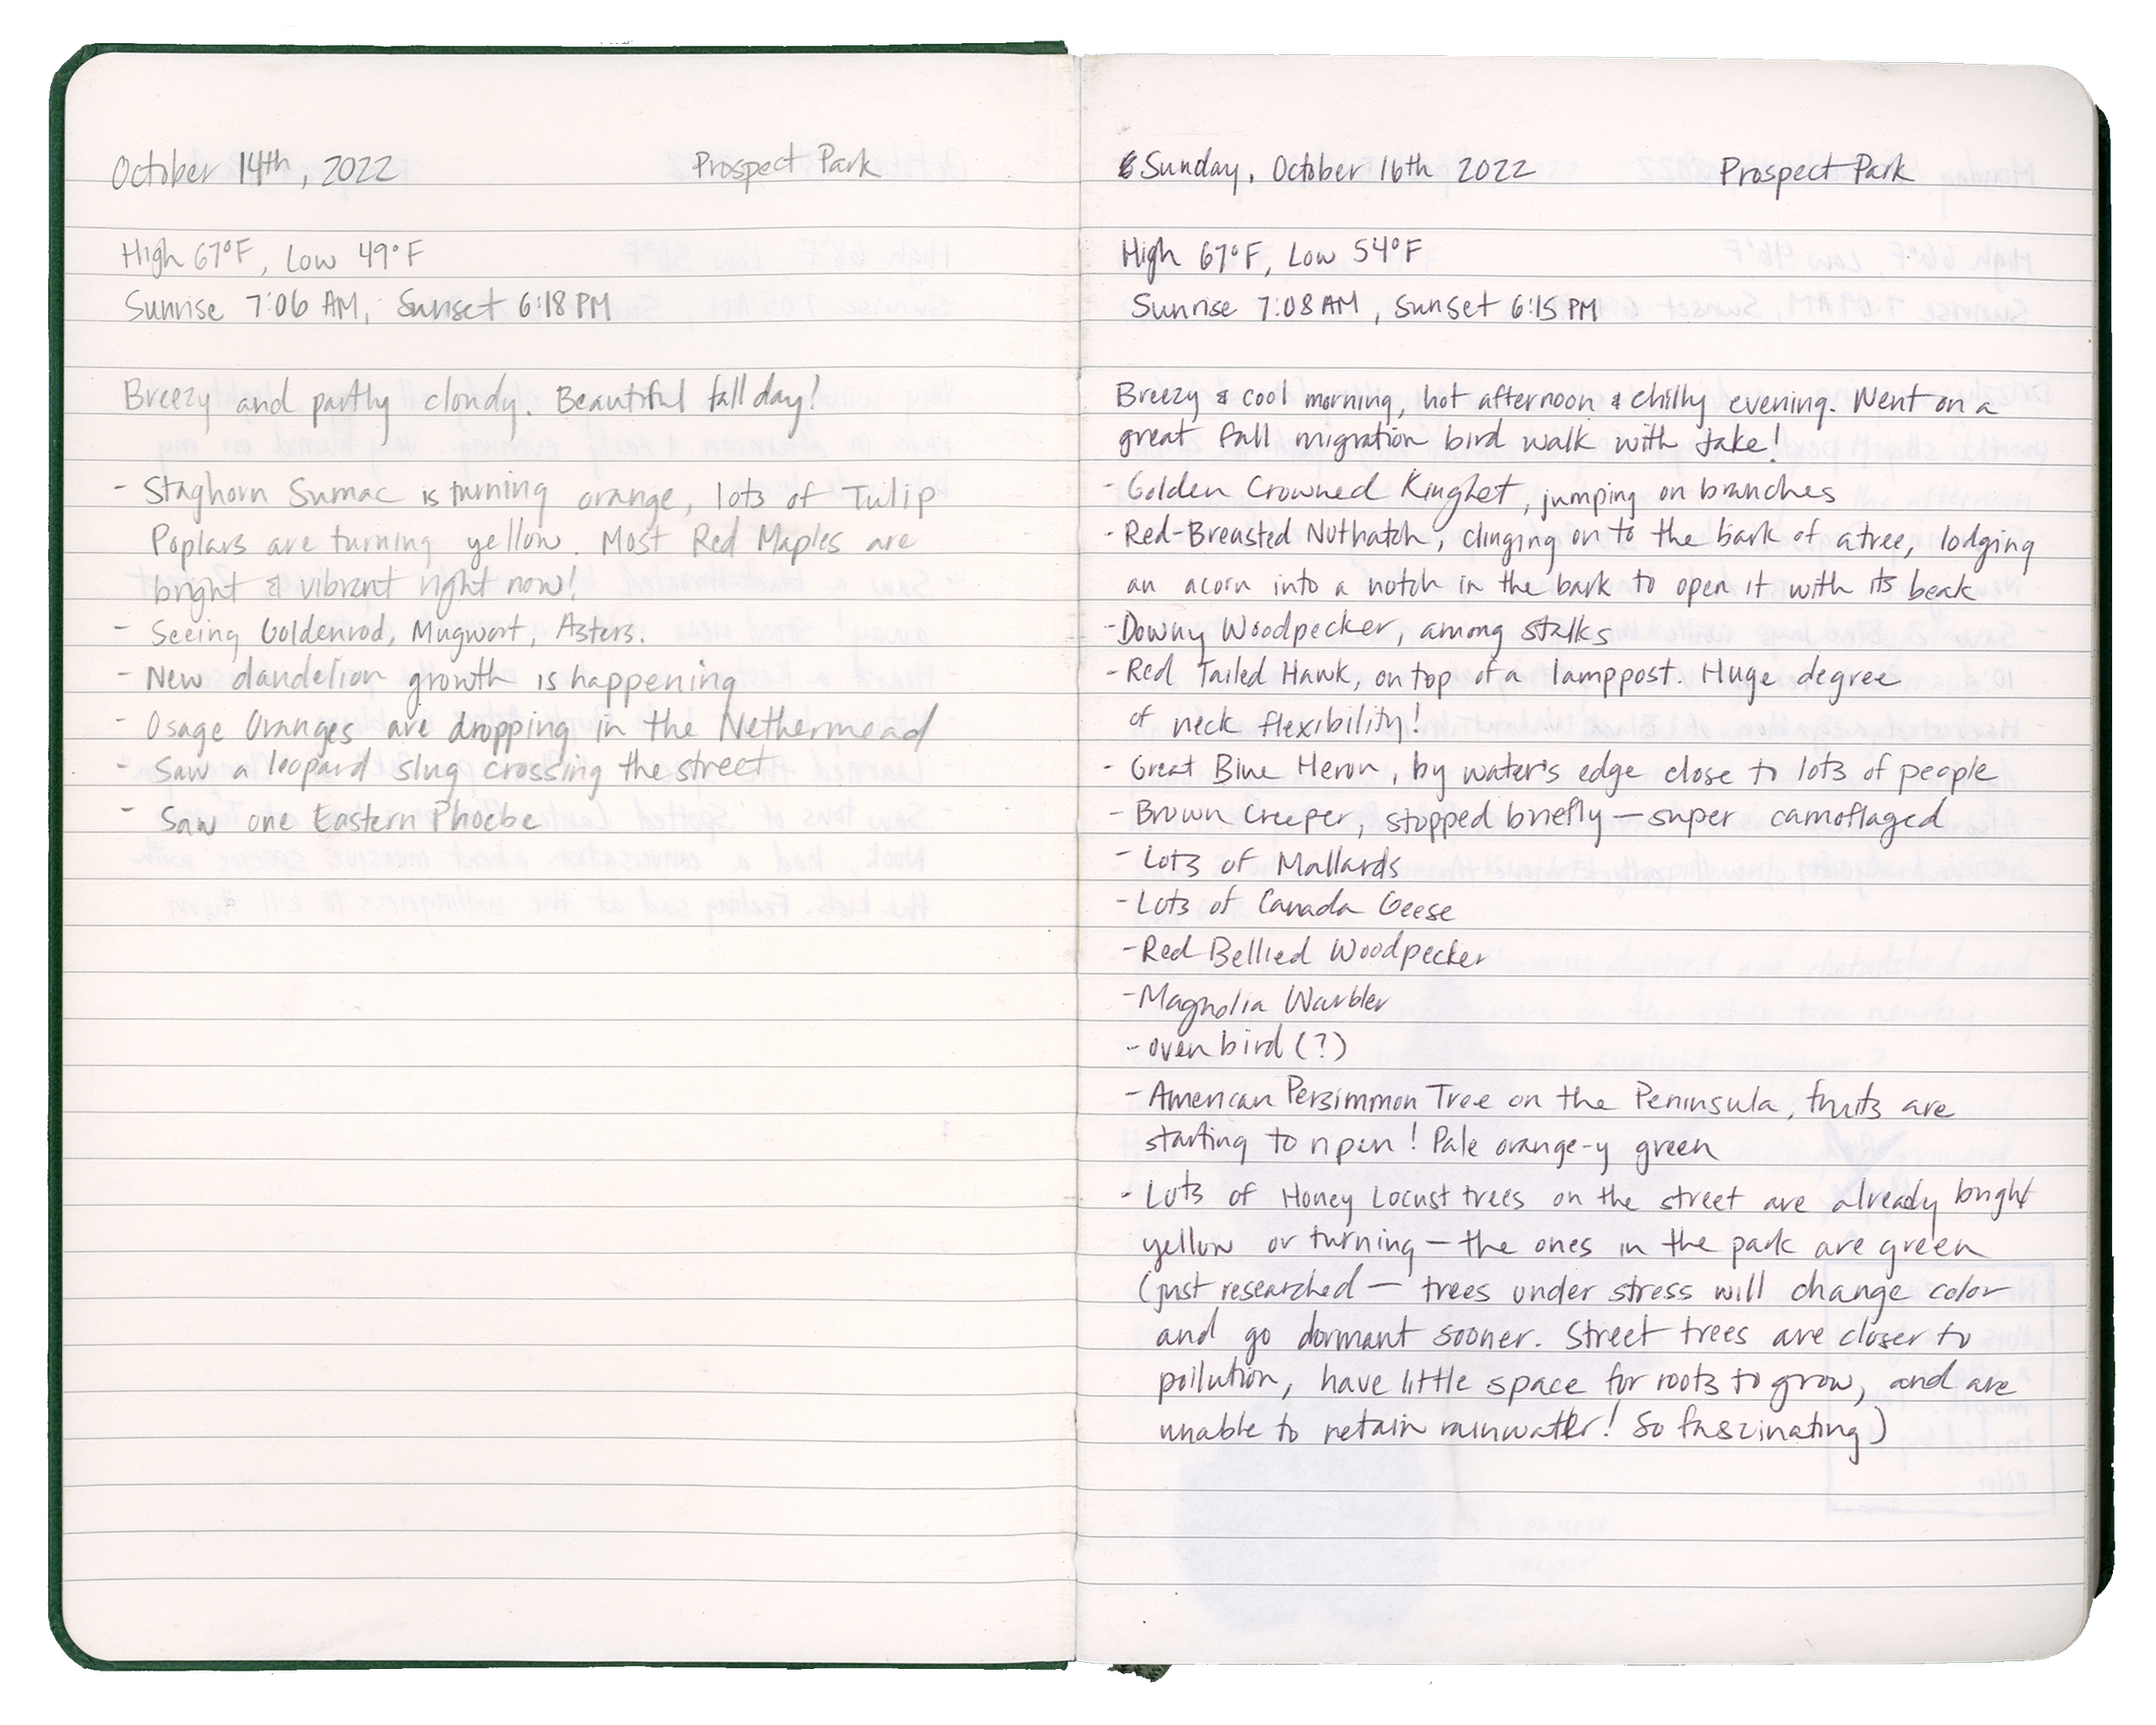 October 14th, 2022 Prospect Park
High 67°F, Low 49°F
Sunrise 7:06 AM, Sunset 6:18 PM
Breezy and partly cloudy. Beautiful fall day!
- Staghorn Sumac is turning orange, lots of Tulip
Poplars are turning yellow. Most Red Maples are
bright & vibrant right now!
- Seeing Goldenrod, Mugwort, Asters.
- New dandelion growth is happening
- Osage Oranges are dropping in the Nethermead
- Saw a leopard slug crossing the street
- Saw one Eastern Phoebe
Sunday, October 16th 2022 Prospect Park
High 67°F, Low 54°F
Sunrise 7:08 AM, Sunset 6:15 PM
Breezy & cool morning, hot afternoon & chilly evening. Went on a
great fall migration bird walk with Jake!
- Golden Crowned Kinglet, jumping on branches
- Red-Breasted Nuthatch, clinging on to the bark of a tree, lodging
an acorn into a notch in the bark to open it with its beak
- Downy Woodpecker, among stalks
- Red Tailed Hawk, on top of a lamppost. Huge degree
of neck flexibility!
- Great Blue Heron, by water's edge close to lots of people
- Brown Creeper, stopped briefly — super camoflaged
- Lots of Mallards
- Lots of Canada Geese
- Red Bellied Woodpecker
- Magnolia Warbler
- oven bird (?)
- American Persimmon Tree on the Peninsula, fruits are
starting to ripen! Pale orange-y green
- Lots of Honey Locust trees on the street are already bright
yellow or turning — the ones in the park are green
(just researched — trees under stress will change color
and go dormant sooner. Street trees are closer to
pollution, have little space for roots to grow, and are
unable to retain rainwater! So fascinating)